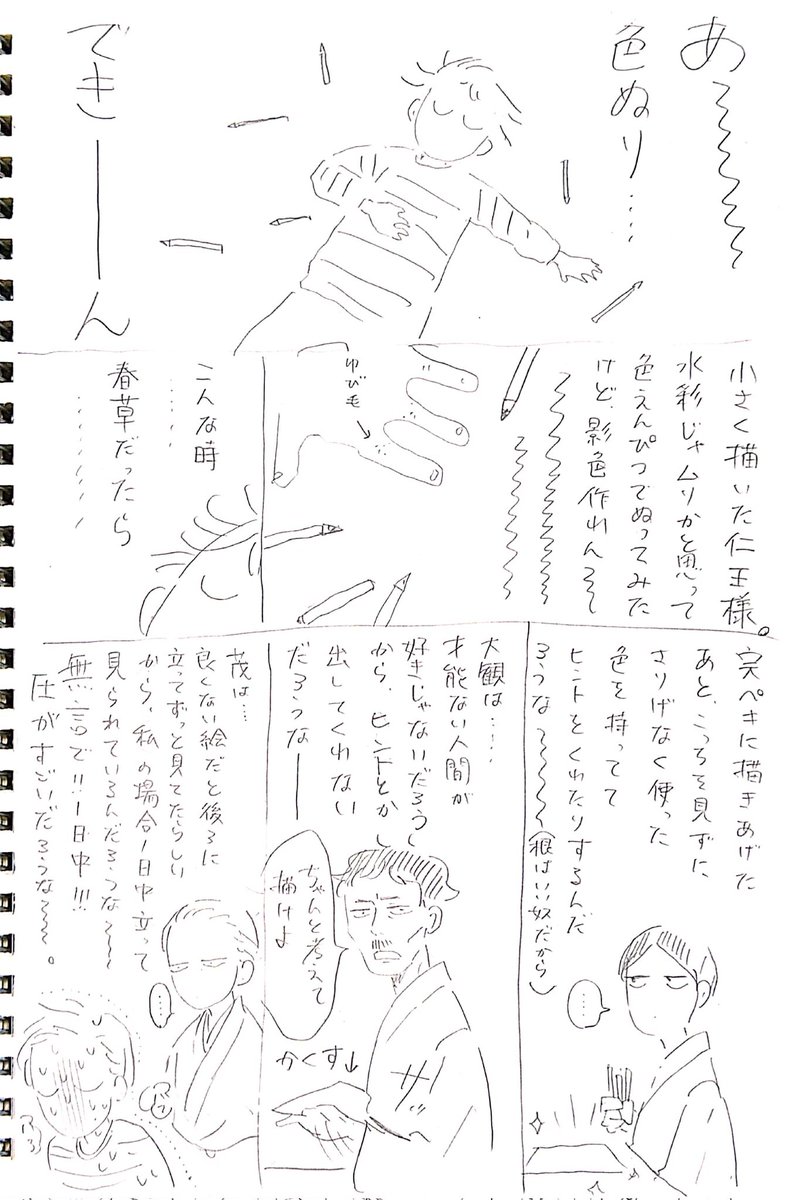 あ〜〜〜〜〜
色ぬり……
できーーーん
小さく描いた仁王様。
水彩じゃムリかと思って
色えんぴつでぬってみた
けど、影色作れん〜〜
ゆび毛
こんな時
……
春草だったら
………
完ペキに描きあげた
あと、こっちを見ずに
さりげなく使った
色を持ってて
ヒントをくれたりするんだ
ろうな〜〜〜〜(根はいい奴だから)
……
大観は……
才能ない人間が
好きじゃないだろうし
から、ヒントとか
出してくれない
だろうなーー
ちゃんと考えて
描けよ
かくす↓
サッ
茂は…
良くない絵だと後ろに
立ってずっと見てたらしい
から、私の場合1日中立って
見られているんだろうな〜〜
無言で!!1日中!!!
圧がすごいだろうな〜〜。
……